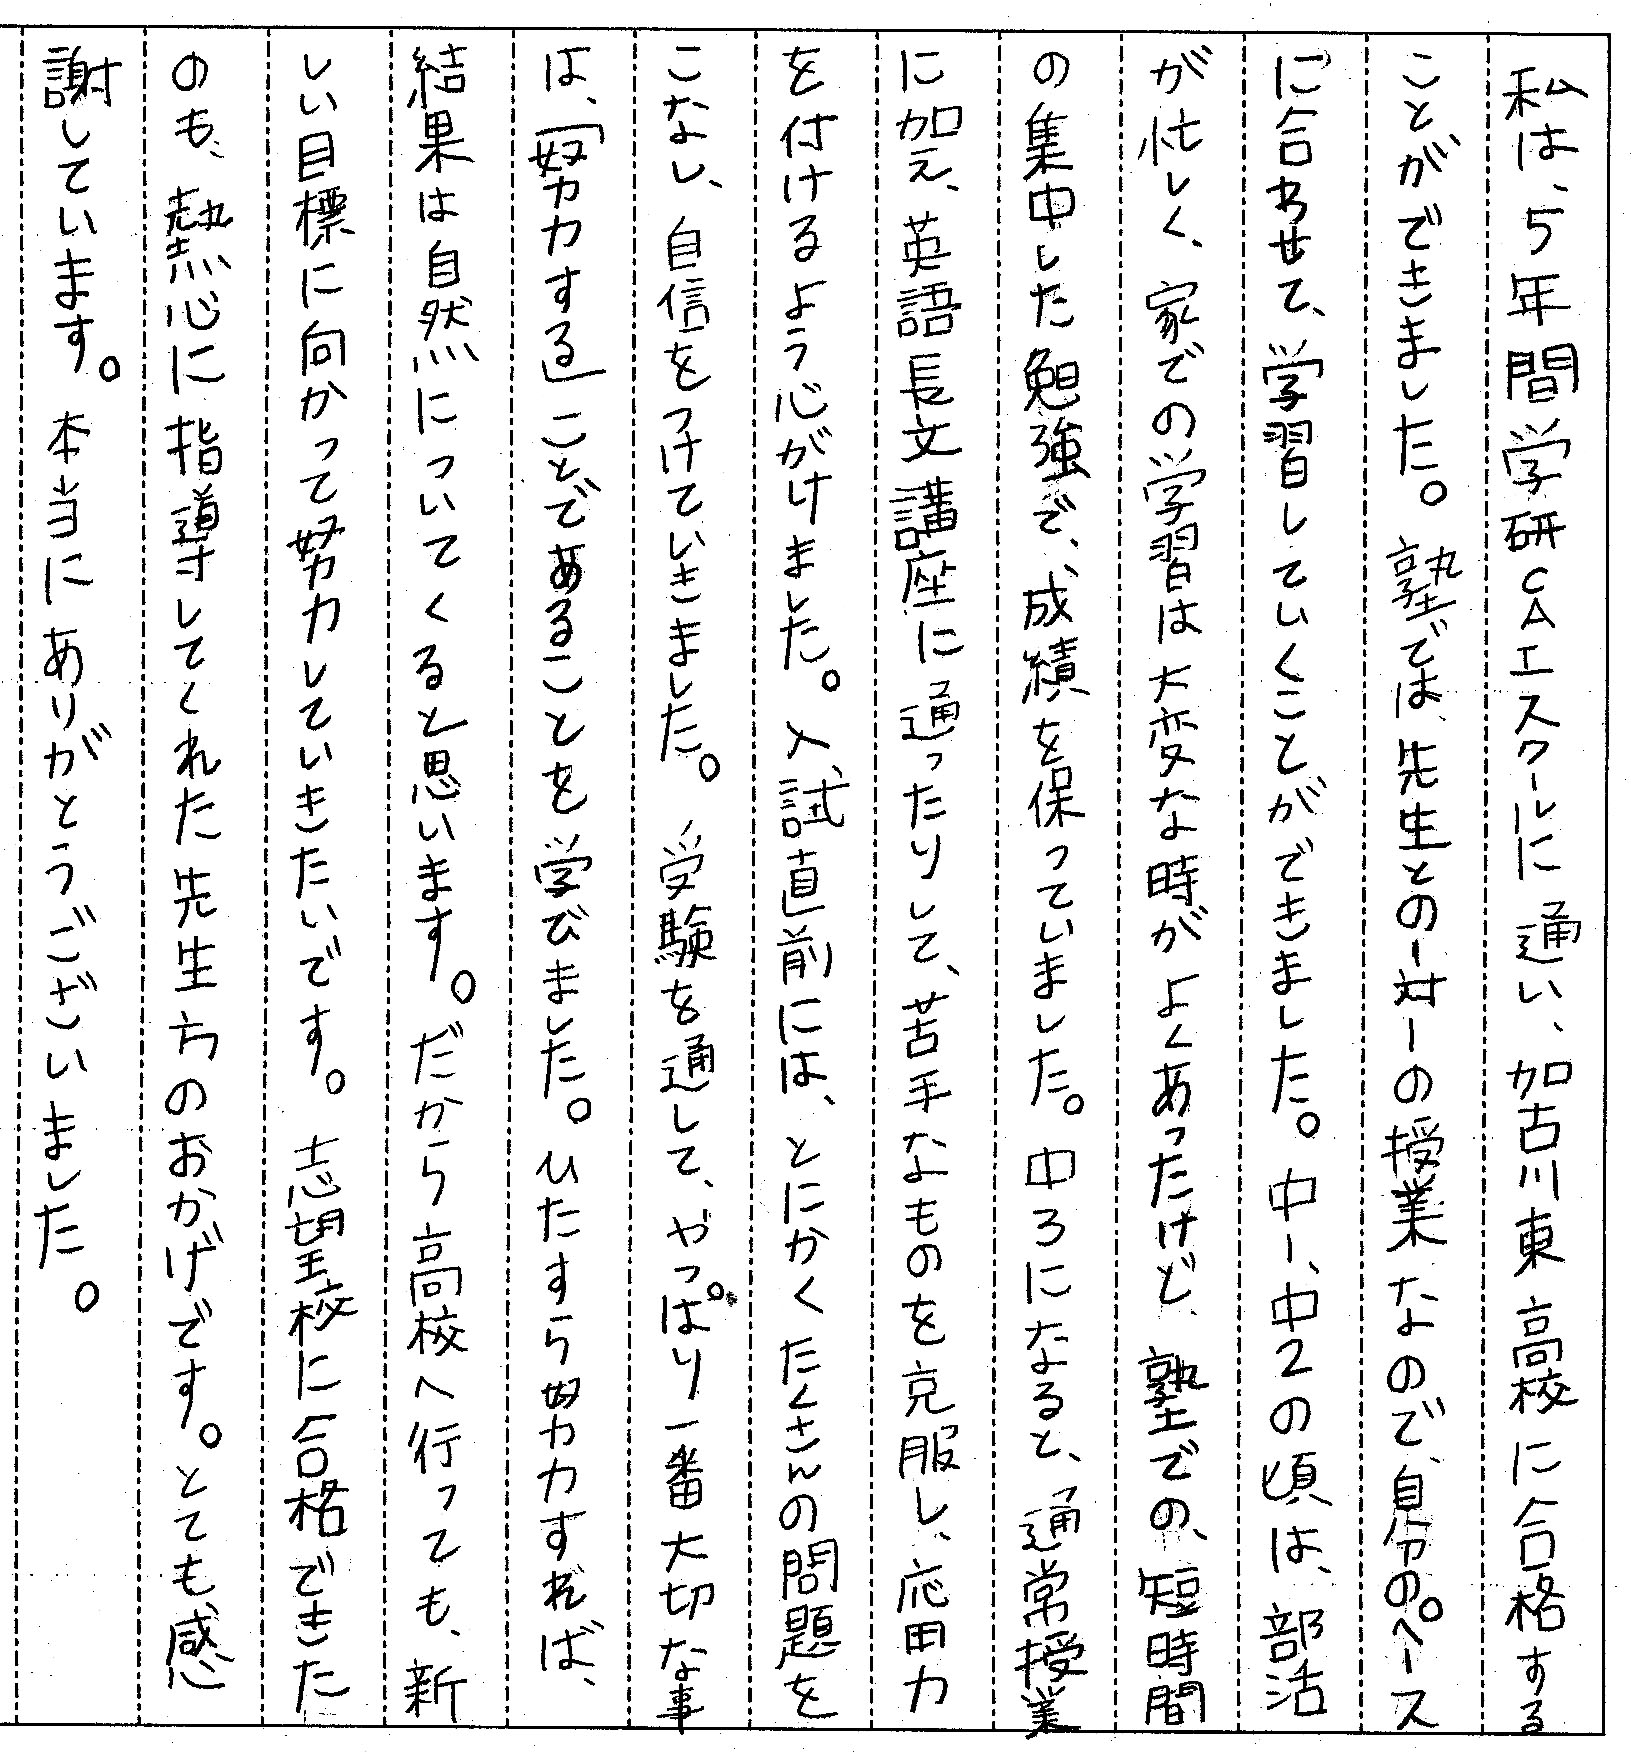 私は、5年間学研CAIスクールに通い、加古川東高校に合格する
ことができました。塾では、先生との一対一の授業なので、自分のペース
に合わせて、学習していくことができました。中1、中2の頃は、部活
が忙しく、家での学習は大変な時がよくあったけど、塾での、短時間
の集中した勉強で、成績を保っていました。中3になると、通常授業
に加え、英語長文講座に通ったりして、苦手なものを克服し、応用力
を付けるよう心がけました。入試直前には、とにかくたくさんの問題を
こなし、自信をつけていきました。受験を通して、やっぱり一番大切な事
は、「努力する」ことであることを学びました。ひたすら努力すれば、
結果は自然についてくると思います。だから高校へ行っても、新
しい目標に向かって努力していきたいです。志望校に合格できた
のも、熱心に指導してくれた先生方のおかげです。とても感
謝しています。本当にありがとうございました。